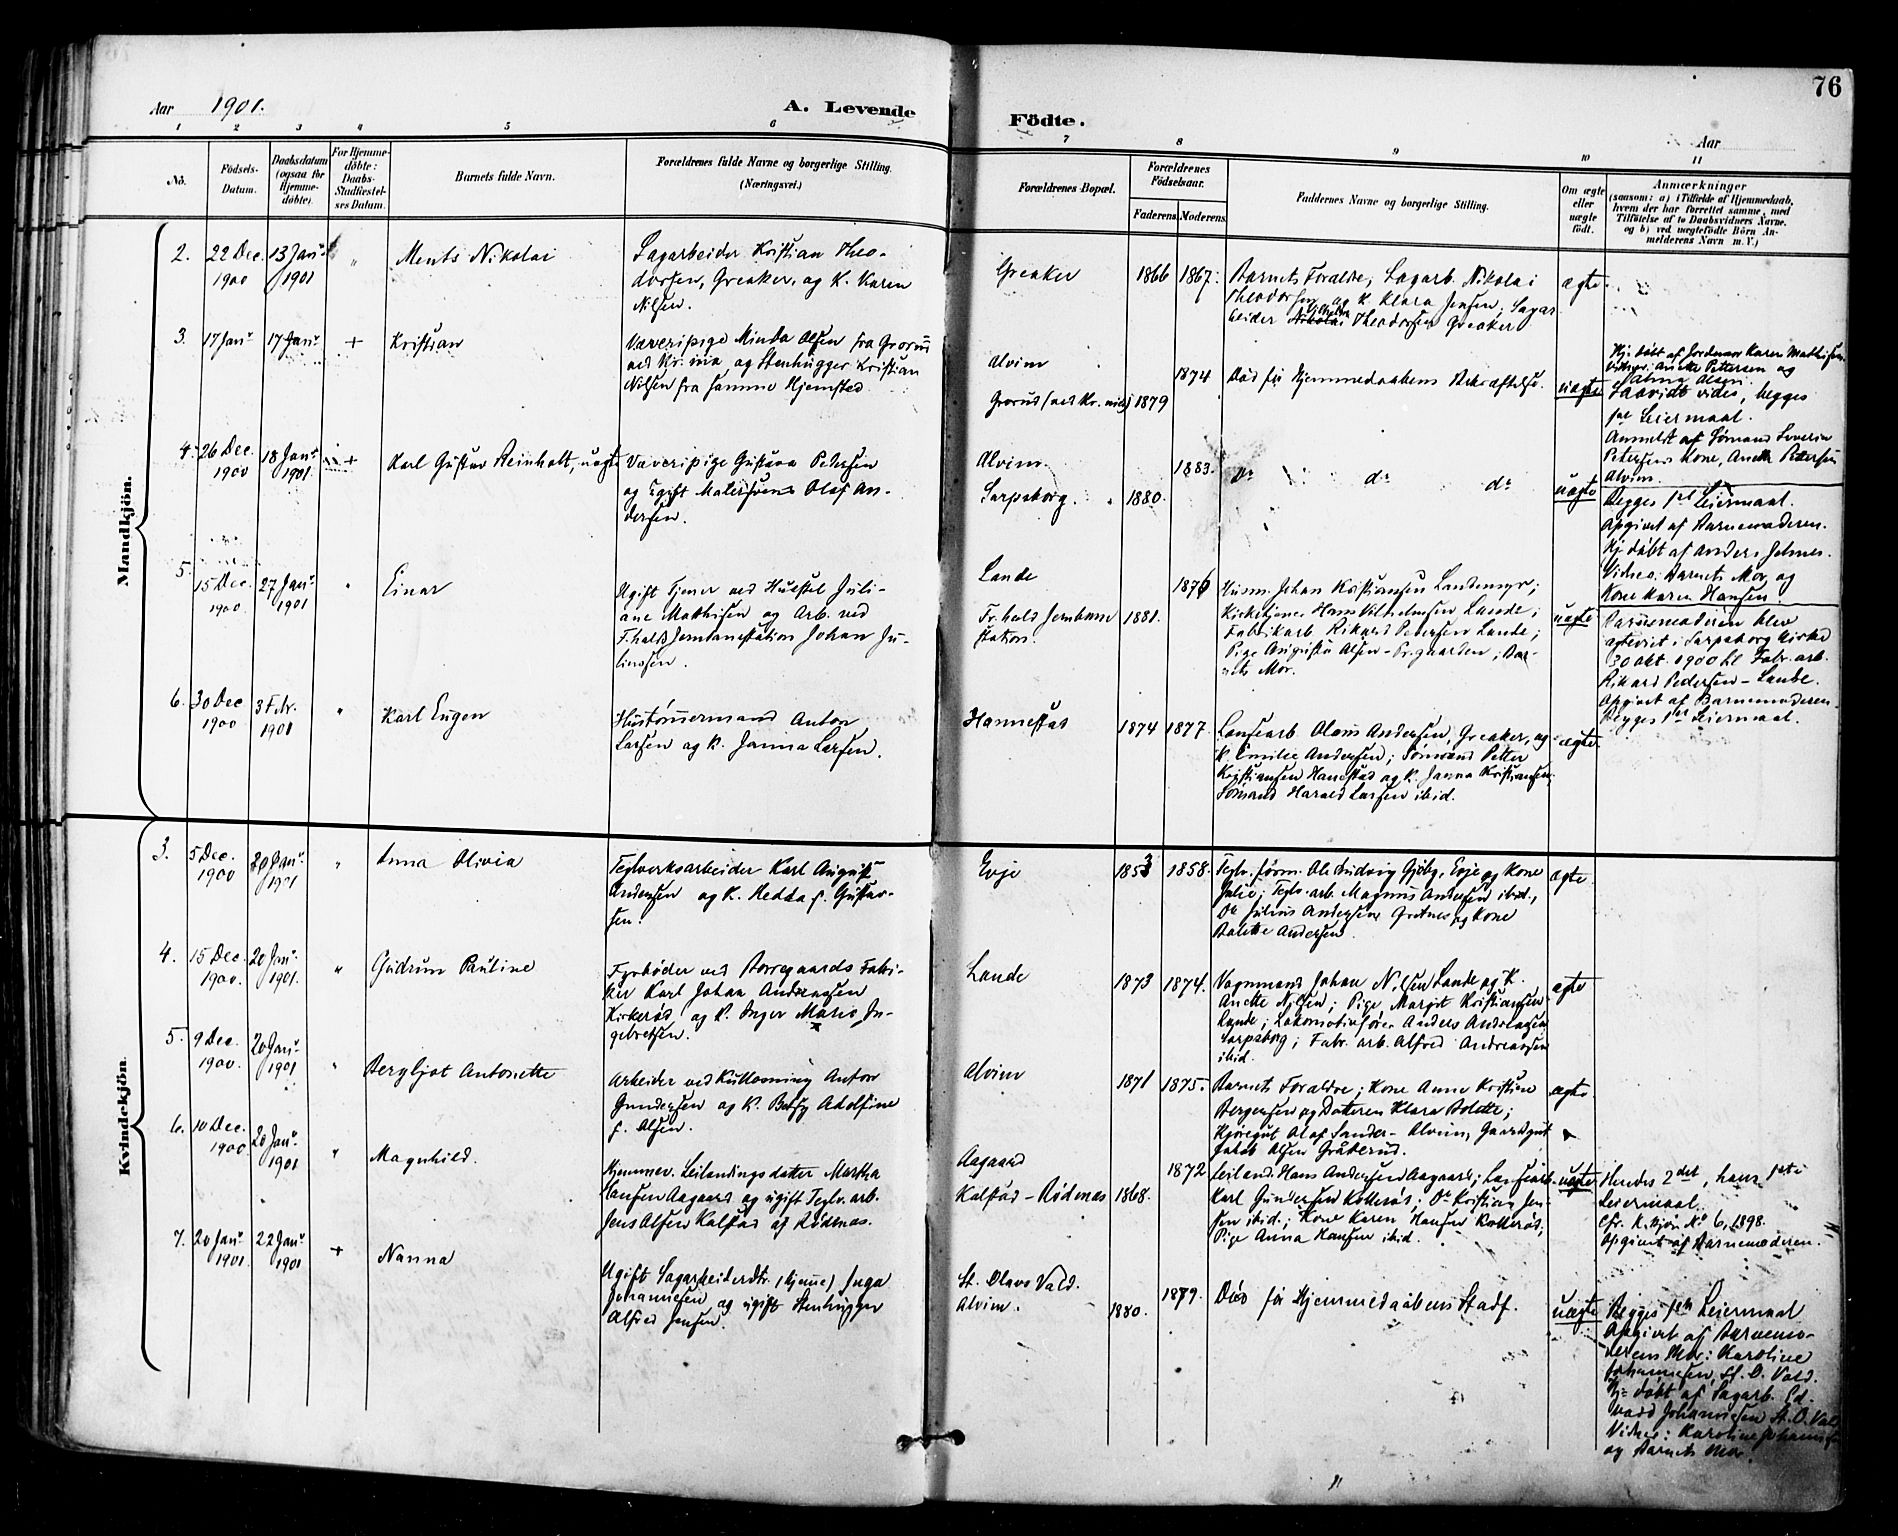 76
Aar 1901.
A. Levende
Födte.
Aar
1 2 3 4 5 6 7 8 9 10 11
No.
Födsels-
Datum.
Daabsdatum
(ogsaa for
Hjemme-
döbte).
For Hjemme-
döbte:
Daabs-
Stadfæstel-
ses Datum.
Barnets fulde Navn.
Forældrenes fulde Navne og borgerlige Stilling.
(Næringsvei.)
Forældrenes Bopæl.
Forældrenes
Födselsaar.
Faderens.
Moderens.
Faddernes Navne og borgerlige Stilling.
Om ægte
eller
uægte
födt.
Anmærkninger
(saasom: a) i Tilfælde af Hjemmedaab,
hvem der har forrettet samme, med
Tilföielse af to Daabsvidners Navne.
og b) ved uægtefödte Börn An-
melderens Navn m. V.)
Mandkjön.
2. 22 Dec. 1900
13 Janr. 1901
"
Ments Nikolai
Sagarbeider Kristian Theo-
dorsen, Greaker, og K. Karen
Nilsen.
Greaker
1866 1867.
Barnets Forældre; Sagarb. Nikolai
Theodorsen og K. Klara Jensen; Sagar-
beider Theodorsen Greaker
ægte
3. 17 Janr.
17 Janr.
+
Kristian
Væveripige Minda Olsen fra Grorud
ved Kr.ania og Stenhugger Kristian
Nilsen fra samme Hjemsted
Alvim
Grorud (ved Kr.ania)
1879
1874
Död för Hjemmedaabens Bekræftelse.
uægte
Hj. döbt af Jordmor Karen Mathisen
Vidner: Anette Pettersen og
Alma Olsen.
Saavidt vides, begges
1ste Leiermaal.
Anmeldt af Sömand Severin
Petersens Kone, Anette Petersen
Alvim.
4. 26 Dec. 1900
18 Janr. 1901.
+
Karl Gustav Reinholt, uægte
Væveripige Gustava Petersen
og Ugift Malersvend Olaf An-
dersen.
Alvim.
Sarpsborg.
1880
1883.
do do do
uægte
Begges 1ste Leiermaal.
Opgivet af Barnemoderen.
Hj. döbt af Anders
Vidner: Barnets Mor, og
Kone Karen Hansen.
5. 15 Dec. 1900
27 Janr. 1901
"
Einar
Ugift Tjener ved Juli-
ane Mathisen og Arb. ved
Fr.hald Jernbanestation Johan Ju-
linssen.
Lande
Fr.hald Jernbane
station.
1881.
1876
Husm. Johan Kristiansen Landemyr;
Kirketjener Hans Vilhelmsen Lande;
Fabrikarb. Rikard Petersen Lande;
Pige Augusta Olsen – Pr.gaarden; Bar-
nets Mor.
uægte
Barnemoderen blev
ægteviet i Sarpsborg Kirke
30 Okt. 1900 til Fabr. arb.
Rikard Pedersen – Lande.
Opgivet af Barnemoderen.
Begges 1ste Leiermaal.
6. 30 Dec 1900
3 Febr. 1901
"
Karl Eugen
Hustömmermand Anton
Larsen og K. Janna Larsen.
Hannestad
1874 1877.
Landearb. Olaus Andersen, Greaker, og
K. Emilie Andersen; Sömand Petter
Kristiansen Hanestad og K. Janna Kristiansen;
Sömand Harald Larsen ibid.
ægte
Kvindekjön
3. 5 Dec. 1900
20 Janr. 1901
"
Anna Olivia
Teglverksarbeider Karl August
Andersen og K. Hedda f. Gustav-
sen.
Evje
1853 1858.
Teglv. form. Ole Ludvig Gjöby, Evje og Kone
Julie; Teglv. arb. Magnus Andersen ibid.,
Do Julius Andersen Gretnes og Kone
Bolette Andersen.
ægte
4. 15 Dec. 1900.
20 Janr. 1901.
"
Gudrun Pauline
Fyrböder ved Borregaards Fabri-
ker Karl Johan Andreassen
Kirkeröd og K. Inger Marie In-
gebretsen.
Lande
1873 1874.
Vognmand Johan Nilsen Lande og K.
Anette Nilsen; Pige Margit Kristiansen
Lande; Lokomotivförer Anders Andreassen
Sarpsborg; Fabr. arb. Alfred Andreassen
ibid.
ægte
5. 9 Dec. 1900.
20 Janr. 1901
"
Bergljot Antonette
Arbeider ved Kullosning Anton
Gundersen og K. Betsy Adolfine
f. Olsen.
Alvim
1871 1875.
Barnets Forældre; Kone Anne Kristine
Bergersen og Datteren Klara Bolette;
Kjöregut Olaf Sander – Alvim, Gaardsgut
Jakob Olsen Gråterud.
ægte
6. 10 Dec. 1900
20 Janr. 1901
"
Magnhild.
Hjemmev. Leilændingsdatter Martha
Hansen Aagaard og ugift Teglv. arb.
Jens Olsen Kalstad af Rödenes.
Aagaard
Kalstad – Rödenes
1868.
1872
Leilænd. Hans Andersen Aagaard; Landearb.
Karl Gundersen Kolleröd; Do Kristian Jen-
sen ibid.; Kone Karen Hansen Kolleröd;
Pige Anna Hansen ibid.
uægte
Hendes 2det, hans 1ste
Leiermaal.
Cfr. K.kjön No 6, 1898.
Opgivet af Barnemoderen.
7. 20 Janr. 1901.
22 Janr. 1901
+
Nanna
Ugift Sagarbeiderdtr. (hjemme) Inga
Johannesen og ugift Stenhugger
Alfred Jensen.
St. Olavs Vold.
Alvim.
1880.
1879.
Död för Hjemmedaabens Stadf.
uægte
Begges 1ste Leiermaal
Opgivet af Barnemo-
derens Mor: Karoline
Johannesen, St. O. Vold.
Hj. döbt af Sagarb. Ed-
vard Johannesen St. O. Vold
Vidner: Karoline Johannesen
og Barnets Mor.